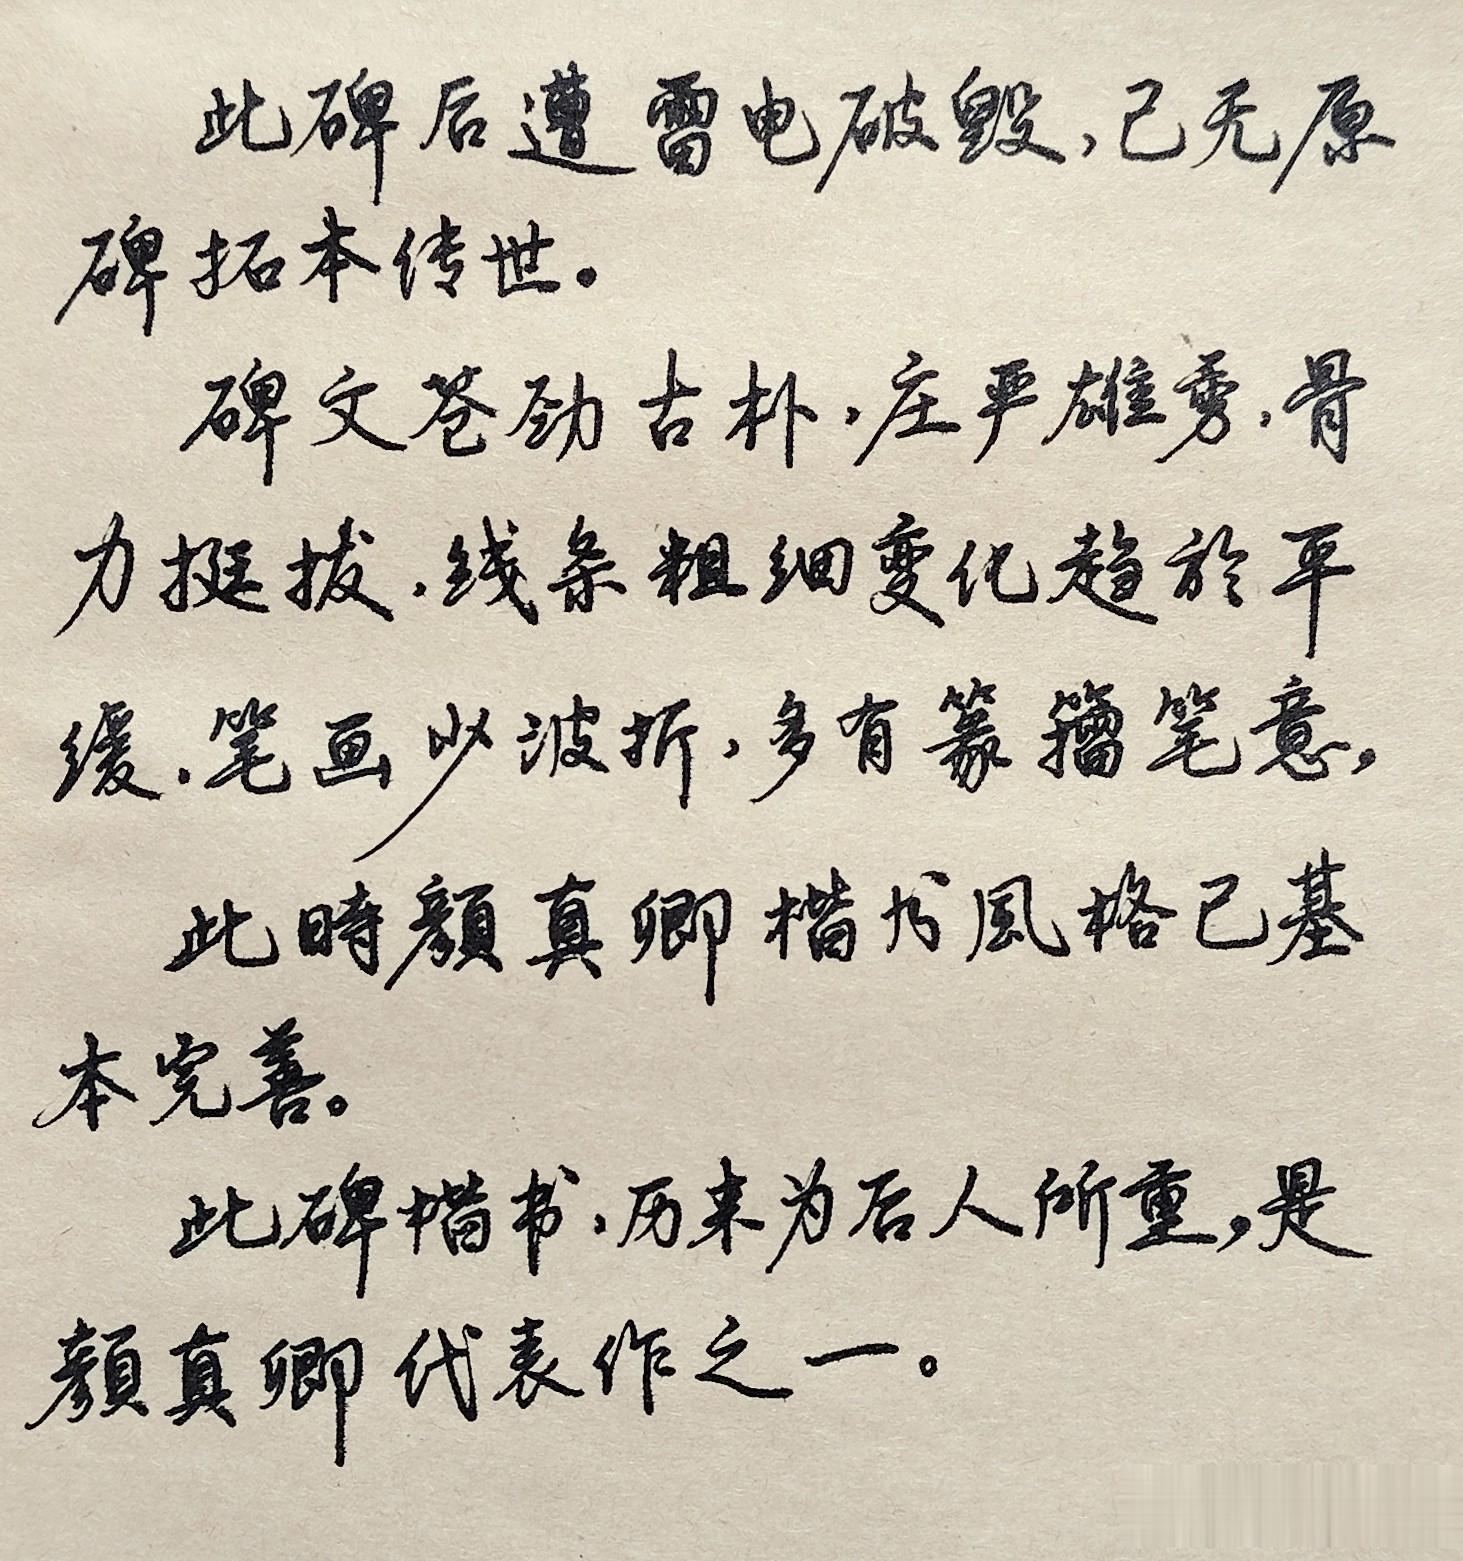 此碑后遭雷电破毁，已无原
碑拓本传世。
碑文苍劲古朴，庄严雄秀，骨
力挺拔，线条粗细变化趋於平
缓，笔画少波折，多有篆籀笔意，
此時顏真卿楷书風格已基
本完善。
此碑楷书，历来为后人所重，是
顏真卿代表作之一。